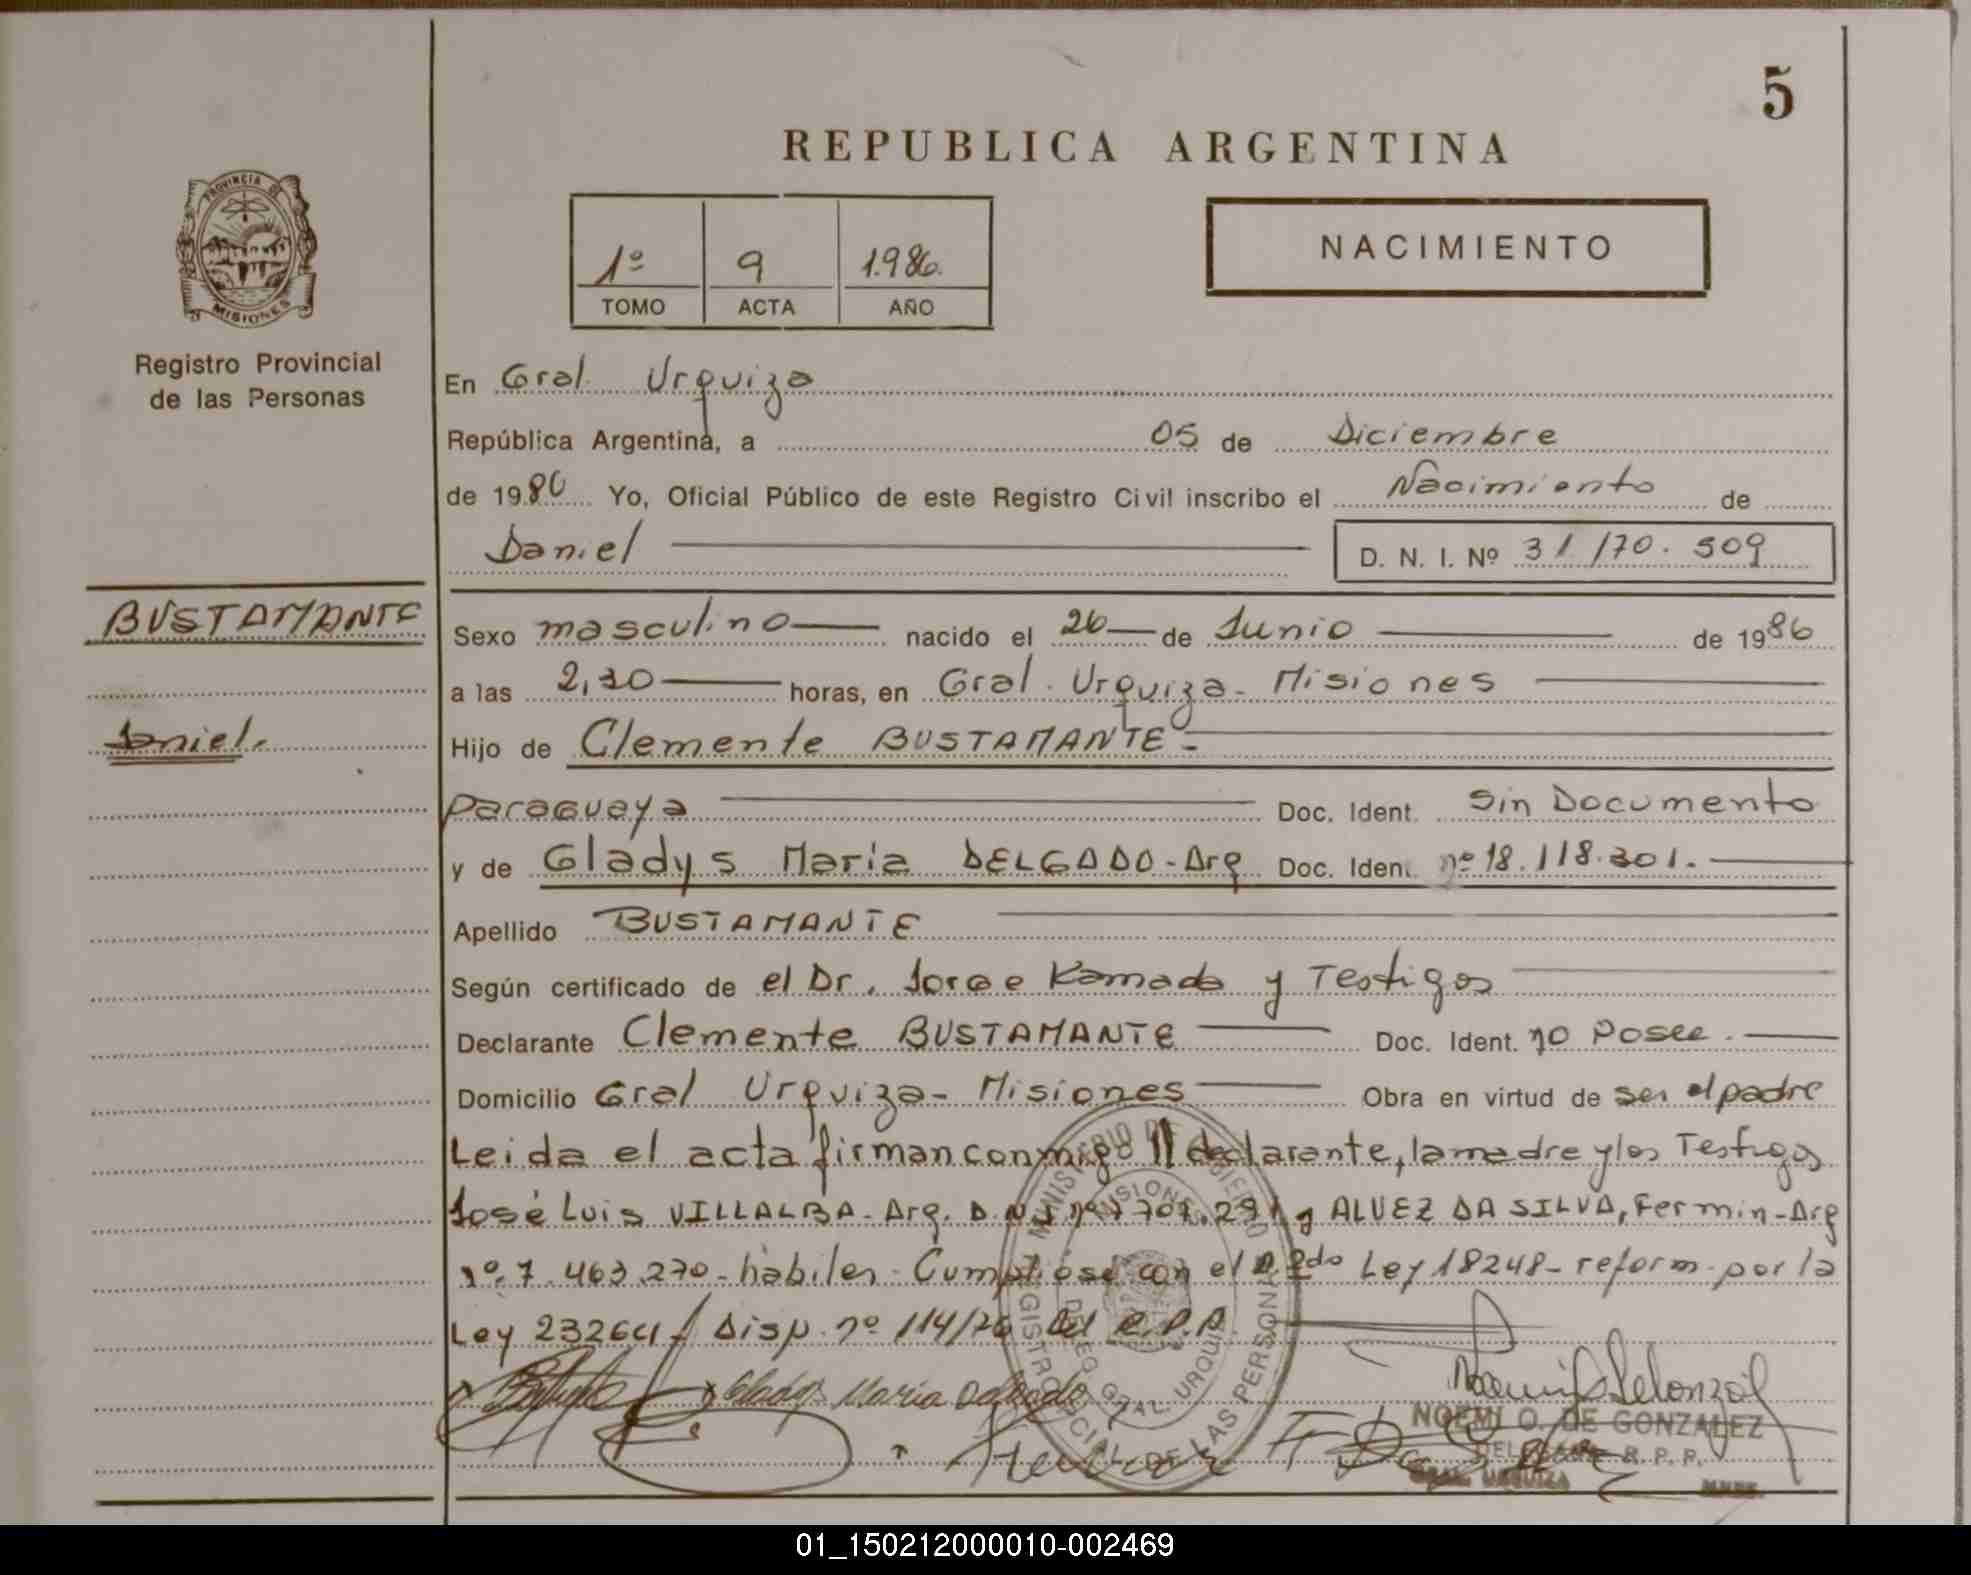 5
REPUBLICA ARGENTINA
PROVINCIA DE
MISIONES
Registro Provincial
de las Personas
1º 9 1.986.
TOMO ACTA AÑO
NACIMIENTO
En Gral. Urquiza
República Argentina, a 05 de Diciembre
de 1986 Yo, Oficial Público de este Registro Civil inscribo el Nacimiento de
Daniel D. N. I. Nº 31.170.509
BUSTAMANTE
Daniel.
Sexo masculino nacido el 26 de Junio de 1986
a las horas, en Gral. Urquiza - Misiones
Hijo de Clemente BUSTAMANTE -
Paraguaya Doc. Ident. Sin Documento
y de Gladys Maria DELGADO - Arg Doc. Ident. nº 18.118.301.
Apellido BUSTAMANTE
Según certificado de el Dr. Jorge Kamada y Testigos
Declarante Clemente BUSTAMANTE Doc. Ident. no Posee.
Domicilio Gral Urquiza - Misiones Obra en virtud de ser el padre
Leida el acta firman conmigo el declarante, la madre y los Testigos
José Luis VILLALBA - Arg. D.N.I nº y ALVEZ DA SILVA, Fermin - Arg
nº 7.463.270 - habiles - Cumpliose con el Ley 18248 - reform. por la
Ley 23264 / Disp. nº 114/76 del R.P.P.
Gladys Maria Delgado
NOEMI O. DE GONZALEZ
DELEGADA R. P. P.
GRAL. URQUIZA MNES.
MINISTERIO DE GOBIERNO
MISIONES
REGISTRO PROVINCIAL DE LAS PERSONAS
GRAL. URQUIZA
01_150212000010-002469